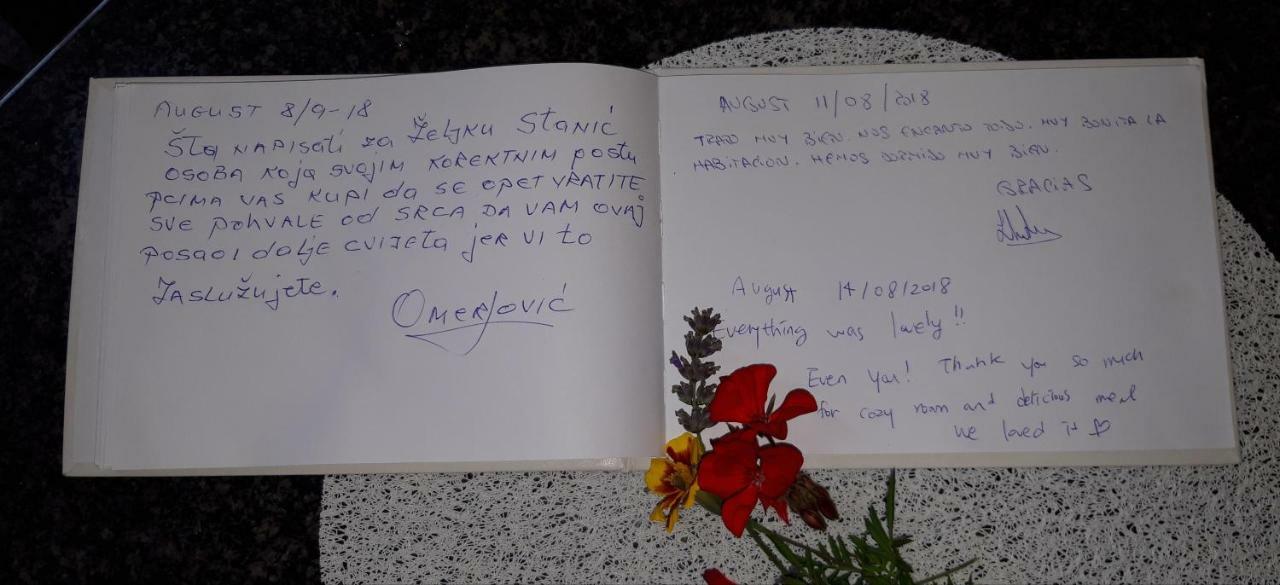 AUGUST 8/9-18
Šta NAPISati za Željku Stanić
OSOBA KOJA SVOJIM KOREKTNIM postu
PCIMA VAS KUPI da SE OPET VRATITE
SVE POHVALE od SRCA DA VAM OVAJ
POSAO I dalje CVIJETA jER VI to
ZASLUŽUJETE.
OMEROVIĆ
AUGUST 11/08/2018
TRATO MUY BIEN. NOS ENCANTO TODO. MUY BONITA LA
HABITACION. HEMOS DORMIDO MUY BIEN.
GRACIAS
August 14/08/2018
Everything was lovely!!
Even You! Thank you so much
for cozy room and delicious meal
We loved it ♡